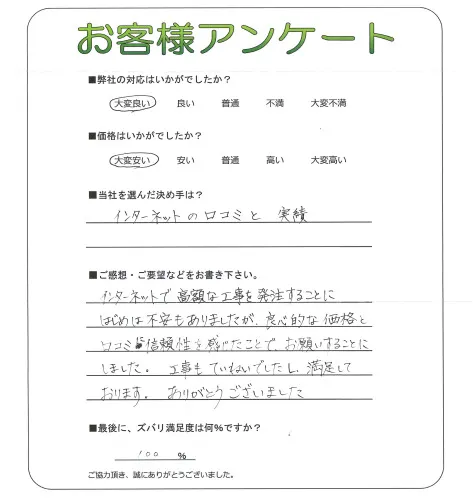 お客様アンケート
■弊社の対応はいかがでしたか？
大変良い 良い 普通 不満 大変不満
■価格はいかがでしたか？
大変安い 安い 普通 高い 大変高い
■当社を選んだ決め手は？
インターネットの口コミと 実績
■ご感想・ご要望などをお書き下さい。
インターネットで 高額な工事を発注することに
はじめは不安もありましたが、良心的な価格と
口コミ 信頼性を感じたことで、お願いすることに
しました。 工事もていねいでしたし、満足して
おります。 ありがとうございました
■最後に、ズバリ満足度は何%ですか？
100 %
ご協力頂き、誠にありがとうございました。